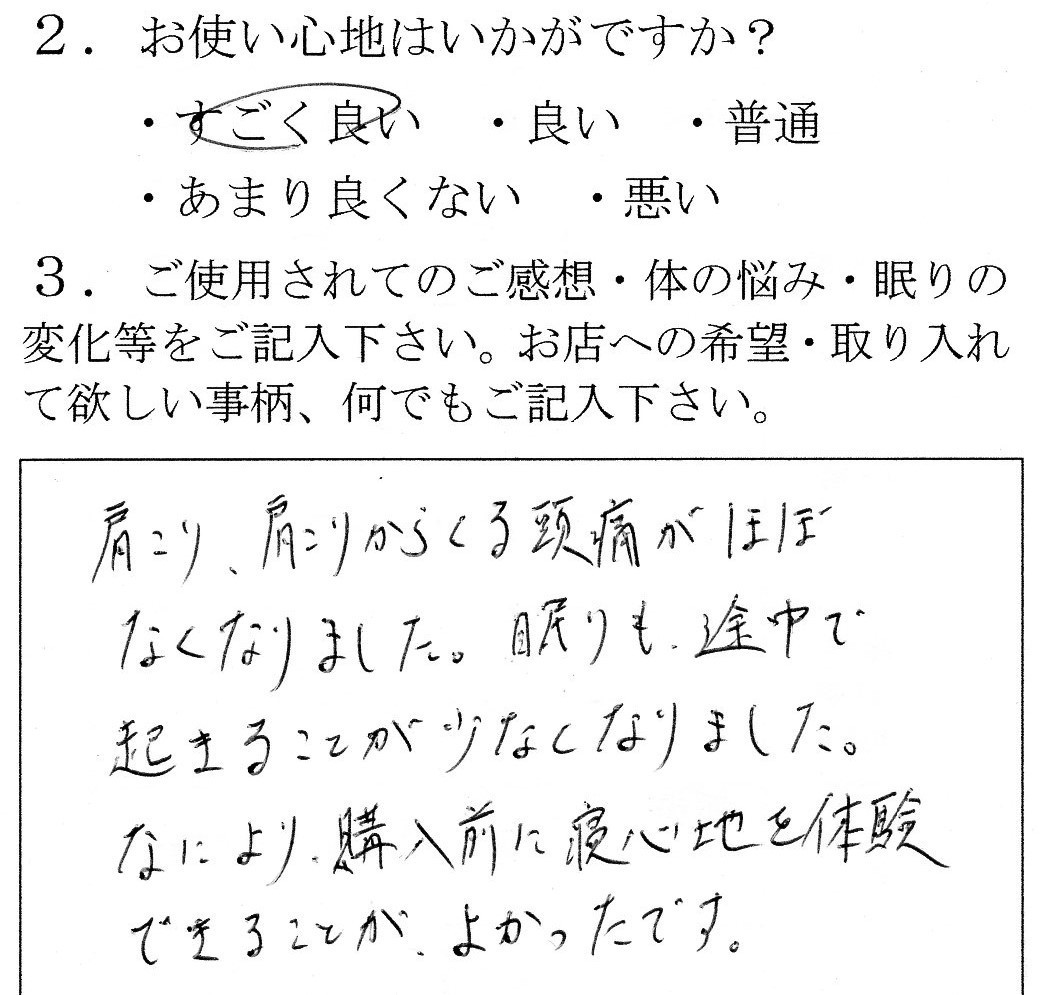 ２．お使い心地はいかがですか？
・すごく良い　・良い　・普通
・あまり良くない　・悪い
３．ご使用されてのご感想・体の悩み・眠りの
変化等をご記入下さい。お店への希望・取り入れ
て欲しい事柄、何でもご記入下さい。
肩こり、肩こりからくる頭痛がほぼ
なくなりました。眠りも、途中で
起きることが少なくなりました。
なにより、購入前に寝心地を体験
できることが、よかったです。